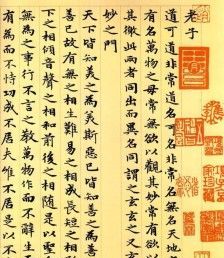 老子
道可道非常道名可名非常名無名天地
有名萬物之母常無欲以觀其妙常有欲以
其徼此兩者同出而異名同謂之玄玄之又玄
妙之門
天下皆知美之為美斯惡已皆知善之為善
善已故有無之相生難易之相成長短之相形
下之相傾音聲之相和前後之相隨是以聖
無為之事行不言之教萬物作而不辭生而
有為而不恃功成不居夫惟不居是以不